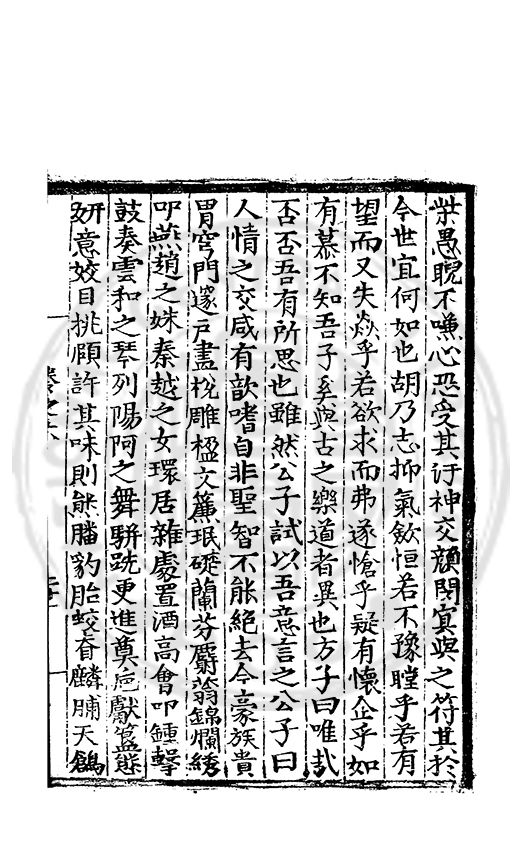 崇愚睨不嗛心恐受其汙神交顏閔寅與之符其於
今世宜何如也胡乃志抑氣歛恒若不豫瞠乎若有
望而又失焱乎若欲求而弗遂愴乎疑有懷企乎如
有慕不知吾子奚與古之樂道者異也方子曰唯武
否否吾有所思也雖然公子試以吾意言之公子曰
人情之交咸有歆嗜自非聖智不能絕去今豪族貴
胃穹門邃戶畫梲雕楹文簾珉礎蘭芬麝蓊錦爛綉
叩燕趙之姝秦越之女環居雜處置酒高會叩鍾擊
鼓奏雲和之琴列陽阿之舞駢跣更進奠巵獻簋態
妍意姣目挑頤許其味則熊膰豹胎蛟脊麟脯天鷁
卷之六